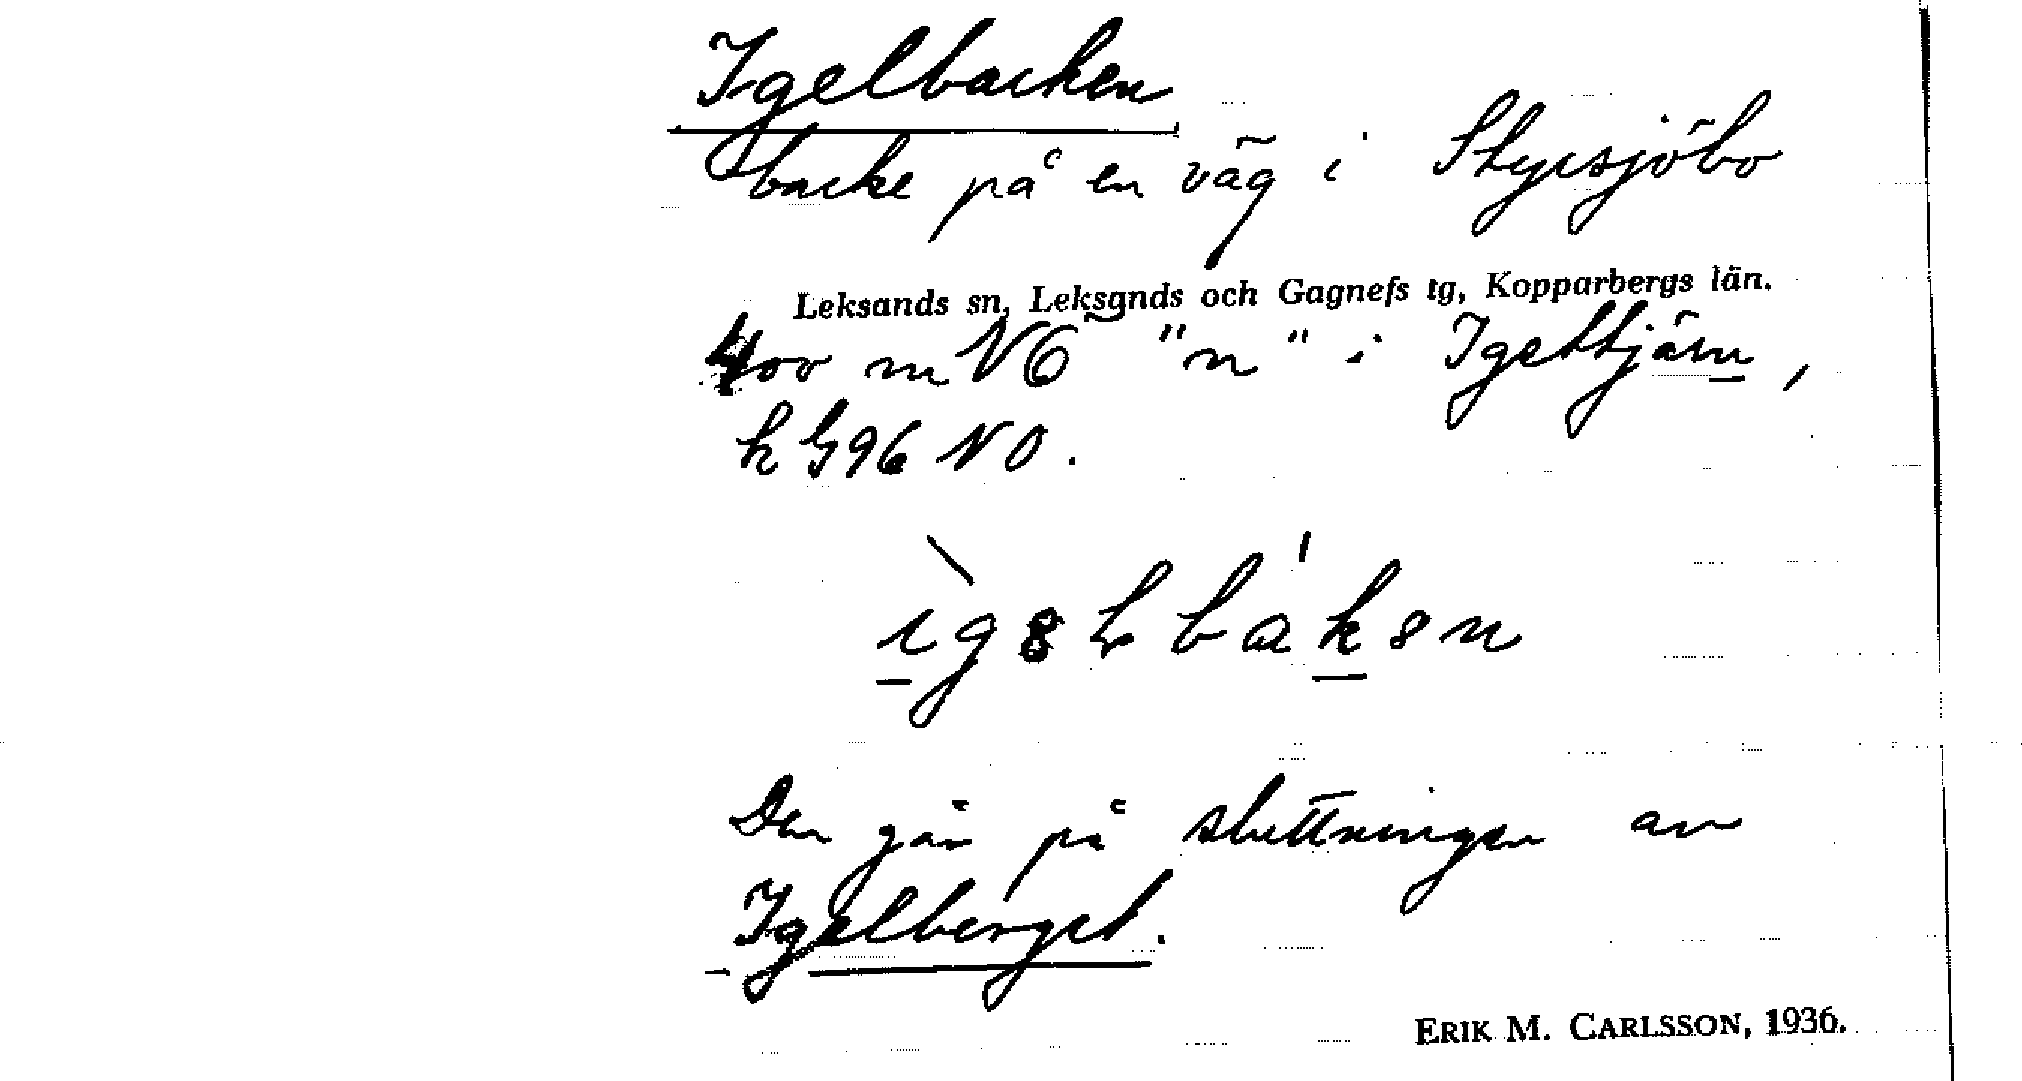 Igelbacken
backe på en väg i Styrsjöbo
Leksands sn, Leksands och Gagnefs tg, Kopparbergs län.
400 m NÖ "n" i Igeltjärn,
k G96 NO.
Den går på sluttningen av
Igelberget.
ERIK M. CARLSSON, 1936.